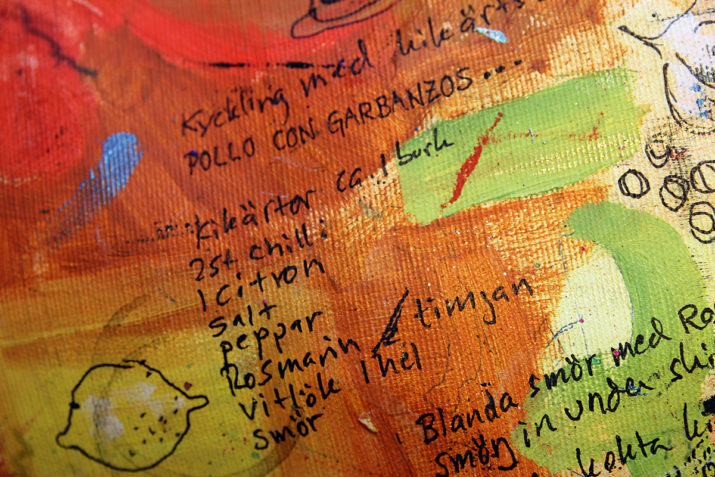 Kyckling med kikärts
POLLO CON GARBANZOS...
Kikärtor ca 1 burk
2st chilli
1 citron
salt
peppar
Rosmarin / timjan
vitlök 1 hel
smör
Blanda smör med Ro
smörj in under ski
kokta ki